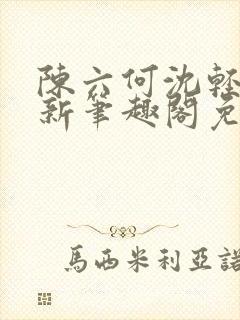 陳六何沈輕
新筆趣閣免
馬西米利亞諾